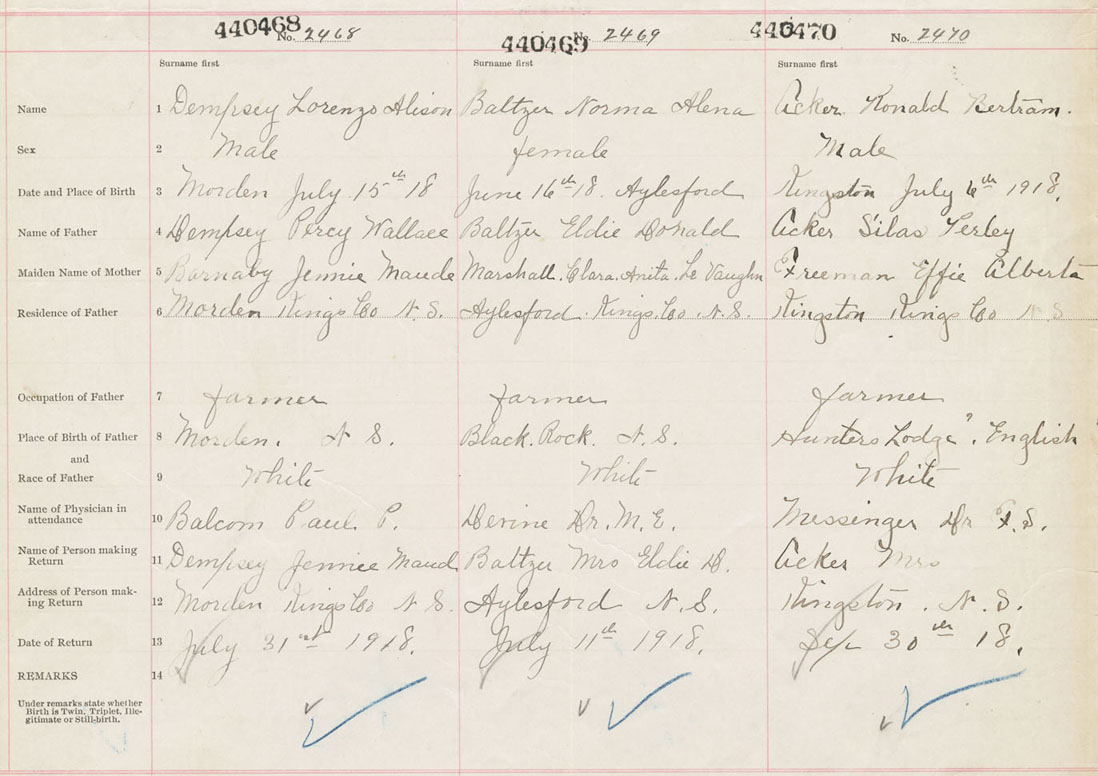 440468 No. 2468 440469 No. 2469 440470 No. 2470
Surname first Surname first Surname first
Name 1 Dempsey Lorenzo Alison Baltzer Norma Alena Acker Ronald Bertram.
Sex 2 Male female Male
Date and Place of Birth 3 Morden July 15th 18 June 16th 18. Aylesford Kingston July 6th 1918.
Name of Father 4 Dempsey Percy Wallace Baltzer Eldie Donald Acker Silas Perley
Maiden Name of Mother 5 Barnaby Jennie Maude Marshall. Clara. Anita. Le Vaughn Freeman Effie Alberta
Residence of Father 6 Morden Kings Co N.S. Aylesford. Kings. Co. N.S. Kingston Kings Co N S
Occupation of Father 7 farmer farmer farmer
Place of Birth of Father 8 Morden. N S. Black. Rock. N.S. Hunters Lodge". English
and
Race of Father 9 White White White
Name of Physician in
attendance 10 Balcom Paul P. Devine Dr. M. E. Messinger Dr F. S.
Name of Person making
Return 11 Dempsey Jennie Maud Baltzer Mrs Eldie D. Acker Mrs
Address of Person mak-
ing Return 12 Morden Kings Co N S. Aylesford N.S. Kingston. N.S.
Date of Return 13 July 31st 1918. July 11th 1918. 30th 18.
REMARKS 14
Under remarks state whether
Birth is Twin, Triplet, Ille-
gitimate or Still-birth.